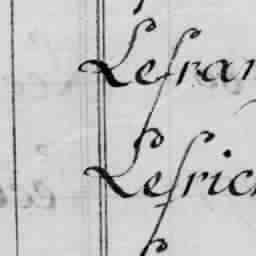 Lefran
Lefrich